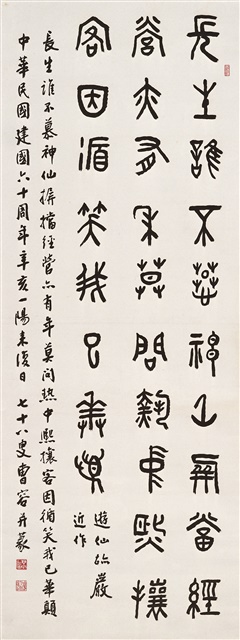 長生誰不慕神仙屏當經
營亦有年莫問熱中熙攘
客因循笑我已華顛
遊仙跡巖
近作
長生誰不慕神仙摒擋經營亦有年莫問熱中熙攘客因循笑我已華顛
中華民國建國六十周年辛亥一陽來復日 七十八叟曹容并篆